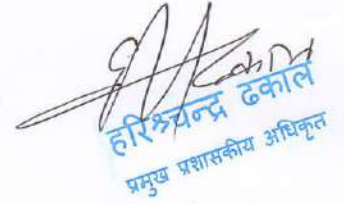 हरिश्चन्द्र ढकाल
प्रमुख प्रशासकीय अधिकृत